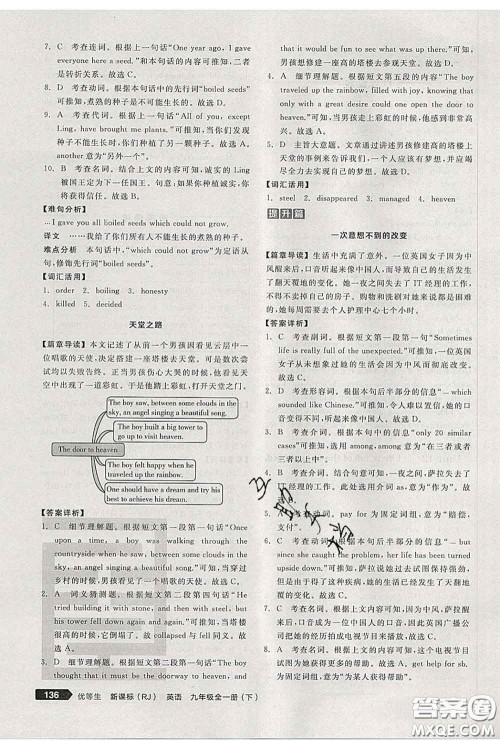 7. C 考查连词。根据上一句话“One year ago, I gave
everyone here a seed”和本句话的内容可推知,前后
二者是转折关系。故选 C。
8. D 考查名词。根据上一句话中的“boiled seeds”
可推知,煮熟的种子是不可能生长的。故选 D。
9. A 考查代词。根据上一句话“All of you, except
Ling, have brought me plants.”可推知,当你们发现
种子不能生长时,你们种植了另一颗种子。故选 A。
another 意为“另外一个”。
10. A 考查名词。结合上文内容可推知,诚实的 Ling
被国王定为下一任国王。如果你种植诚实,你将
获得信任。故选 A。
【难句分析】
I gave you all boiled seeds which could not grow.
译文 我给了你们所有人不能生长的煮熟的种子。
难点分析 本句话中“which could not grow”为定语从
句,修饰先行词“boiled seeds”。
【词汇活用】
1. order 2. boiling 3. honesty
4. killed 5. decided
天堂之路
【篇章导读】 本文叙述了从前一个男孩因看见云层中一
位唱歌的天使,决定搭建一座塔楼去天堂,几次搭建都最
尝试均以失败告终。正当男孩伤心大哭的时候,他看到
天空中出现了一道彩虹,于是他从彩虹上走到了天堂。
The boy saw, between some clouds in the
sky, an angel singing a beautiful song.
The boy built a big tower
to go up to visit heaven.
The door to heaven
The boy felt happy when he
traveled up the rainbow.
One should have a dream and try his
best to achieve his dream.
【答案详析】
1. C 细节理解题。根据短文第一段第一句“Once
upon a time, a boy was walking through the
countryside when he saw, between some clouds in
the sky, an angel singing a beautiful song.”可知,当穿过
乡村的时候,男孩看见了一个唱歌的天使。故选 C。
2. A 词义猜测题。根据短文第二段第四句话“He
tried building it with stone, and then with steel, but
his tower fell down again and again.”可推知,当塔楼
很高的时候,它倒塌了。故 collapsed 与 fell 同义。故
选 A。
3. D 细节理解题。根据短文第二段第一句“The boy
136 优等生 新课标(RJ) 英语 九年级全一册(下)
that it would be fun to see what was up there.”可知,
男孩想修建一座很高的塔楼去天堂看看那里有什
么。故选 D。
4. A 细节理解题。根据短文第五段的内容“The boy
traveled up the rainbow, filled with joy, knowing that
only with a great desire could one open the door to
heaven.”可推知,当男孩走上彩虹的时候,他感到很
高兴。故选 A。
5. D 主旨大意题。文章通过讲述男孩修建塔楼上天
堂的事例来告诉我们,一个人应该有梦想,并且尽力
去实现自己的梦想。故选 D。
【词汇活用】
1. steel 2. disappeared 3. managed 4. heaven
提升篇
一次意想不到的改变
【篇章导读】 生活中充满了意外。一位英国女子因为中
风醒来后,口音听起来像中国人,她的生活也因此发生了
翻天覆地的变化。因为她的口音,她失去了 IT 经理的工
作,失去了原来的房子。购物和洗刷对她来说太累了,
因此她不得不每周支付一个护理中心七个小时。
【答案详析】
1. C 考查副词。根据本文第一段第一句“Sometimes
life is really full of the unexpected.”可推知,一位英国
女子从未想过她的生活会因为中风而彻底改变。
故选 C。
2. A 考查形容词。根据本句后半部分的信息“which
sounded like Chinese.”可推知,她的口音很奇怪,令人
难以置信。故选 A。
3. B 考查介词。根据本句中的信息“only 20 similar
cases”可推知,among 符合题意,意为“在三者或者
三者以上当中”。故选 B。
4. B 考查介词。结合本句内容可推知,萨拉失去了
IT经理的工作。此处用介词 as,意为“作为”。故选
B。
5. A 考查动词。pay for 为固定词组,意为“赔偿,
支付”。
6. C 考查动词。根据本句后半部分的信息“since she
got the health condition that has turned her life
upside down.”可推知,她丈夫在此期间对她的支持
坚持强劲。故选 C。
7. D 考查动词。turn upside down 为固定词组。此
处表示由于得了这种疾病,她的生活发生了天翻地
覆的变化。故选 D。
8. C 考查名词。根据本句内容可推知,萨拉醒来后
发现自己的口音变成了中国口音,因此英国广播公
司制作了关于她的故事的节目。故选 C。